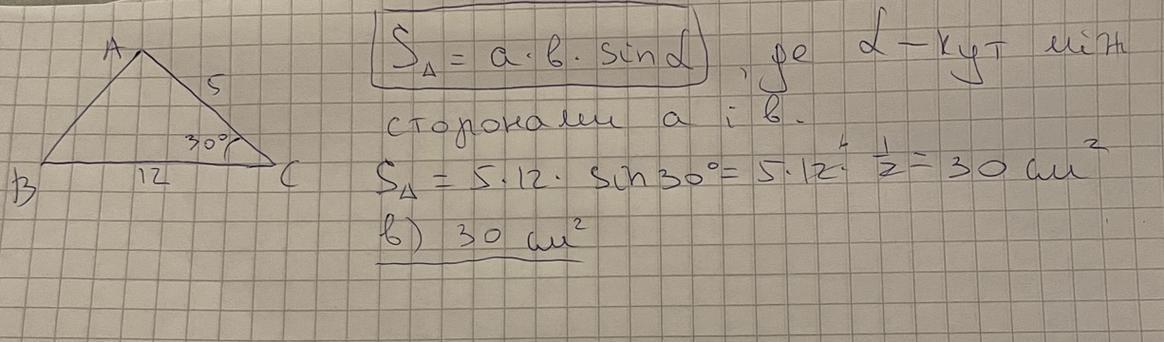 A
5
30°
B
12
C
S△ = a · b · sin α, де α – кут між
сторонами a і b.
S△ = 5·12· sin 30° = 5·12· 1/2 = 30 см²
в) 30 см²